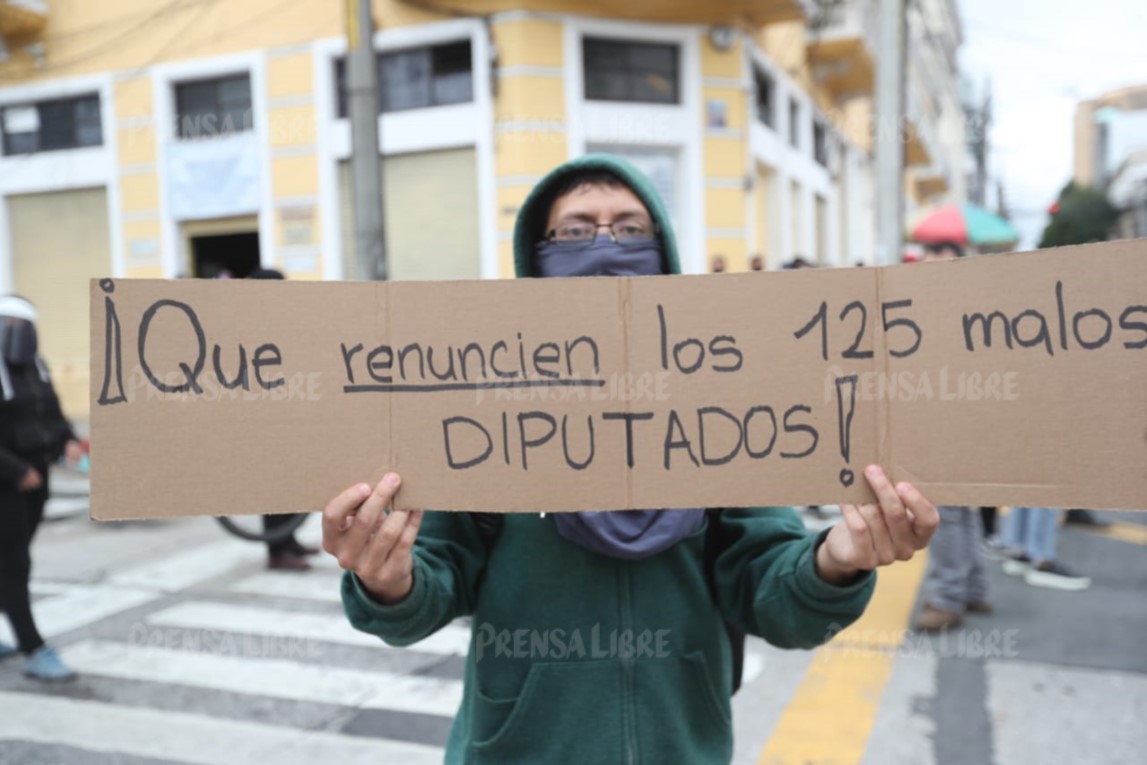 ¡Que renuncien los 125 malos
DIPUTADOS!
PRENSA LIBRE
PRENSA LIBRE
PRENSA LIBRE
PRENSA LIBRE
PRENSA LIBRE
PRENSA LIBRE
PRENSA LIBRE
PRENSA LIBRE
PRENSA LIBRE